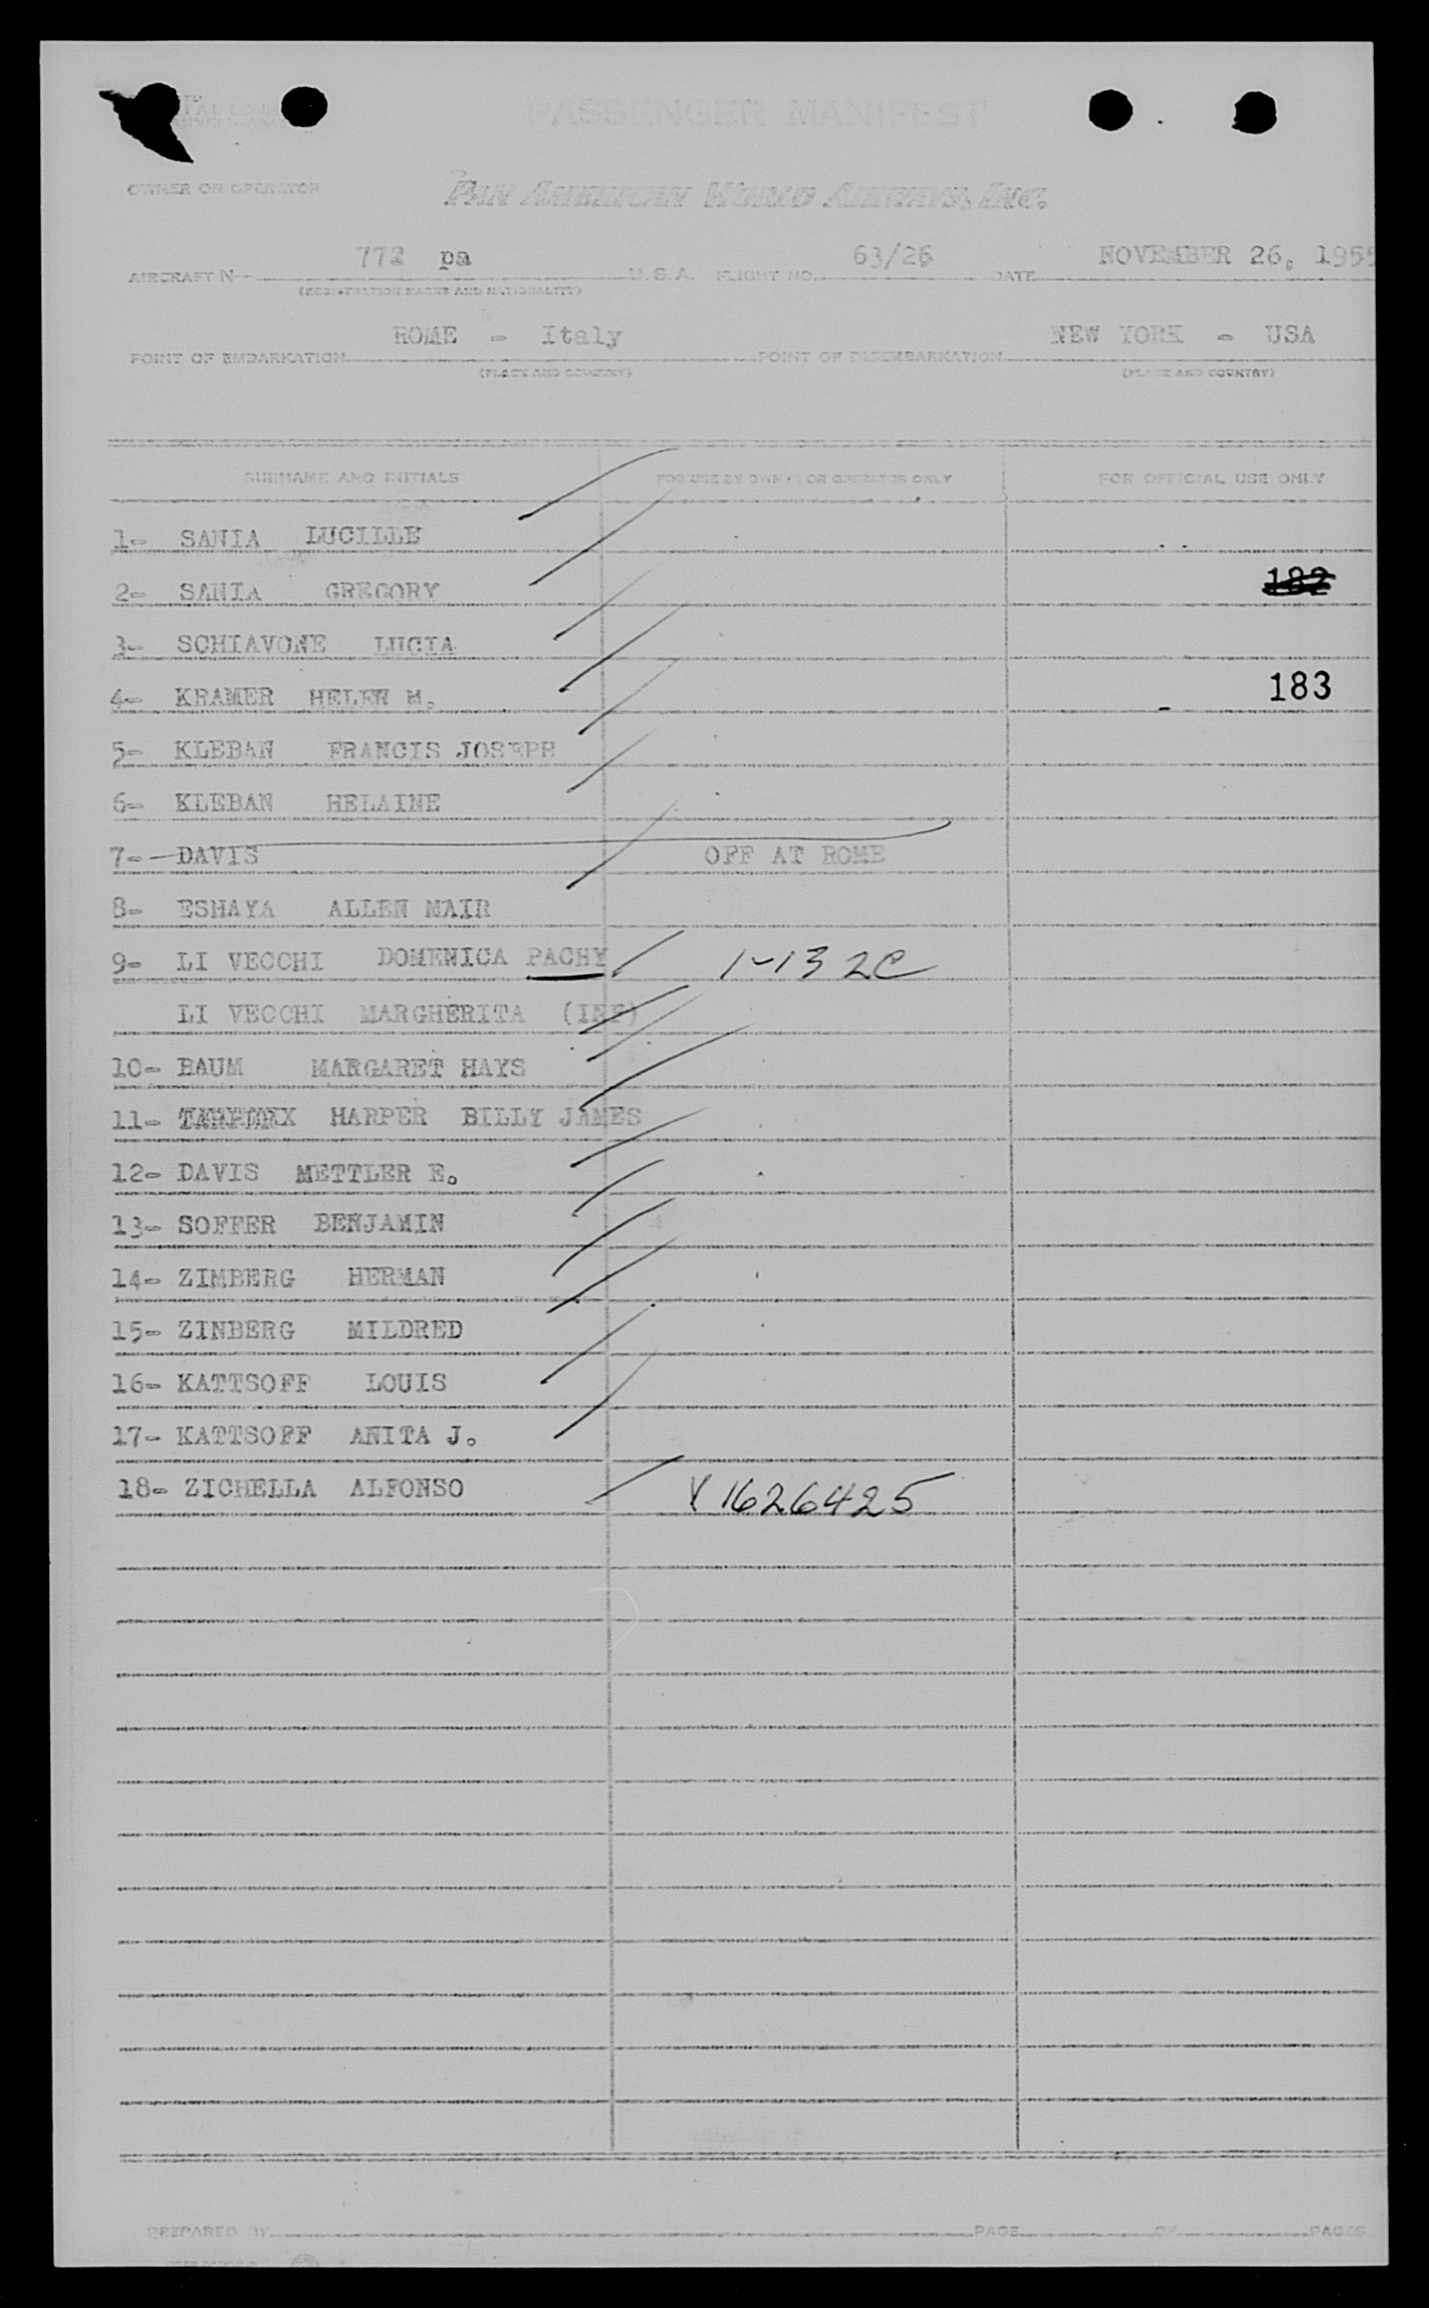 PASSENGER MANIFEST
OWNER OR OPERATOR PAN AMERICAN WORLD AIRWAYS, INC.
AIRCRAFT N 772 pa U.S.A. FLIGHT NO. 63/26 DATE NOVEMBER 26, 1955
(REGISTRATION MARKS AND NATIONALITY)
POINT OF EMBARKATION ROME - Italy POINT OF DISEMBARKATION NEW YORK - USA
(PLACE AND COUNTRY) (PLACE AND COUNTRY)
SURNAME AND INITIALS FOR USE BY OWNER OR OPERATOR ONLY FOR OFFICIAL USE ONLY
1- SANIA LUCILLE
2- SANIA GREGORY 182
3- SCHIAVONE LUCIA
4- KRAMER HELEN M. 183
5- KLEBAN FRANCIS JOSEPH
6- KLEBAN HELAINE
7- DAVIS OFF AT ROME
8- ESHAYA ALLEN MAIR
9- LI VECCHI DOMENICA PACHY 1-132C
LI VECCHI MARGHERITA (INF)
10- BAUM MARGARET HAYS
11- HARPER BILLY JAMES
12- DAVIS METTLER E.
13- SOFFER BENJAMIN
14- ZIMBERG HERMAN
15- ZINBERG MILDRED
16- KATTSOFF LOUIS
17- KATTSOFF ANITA J.
18- ZICHELLA ALFONSO Y1626425
PREPARED BY PAGE OF PAGES